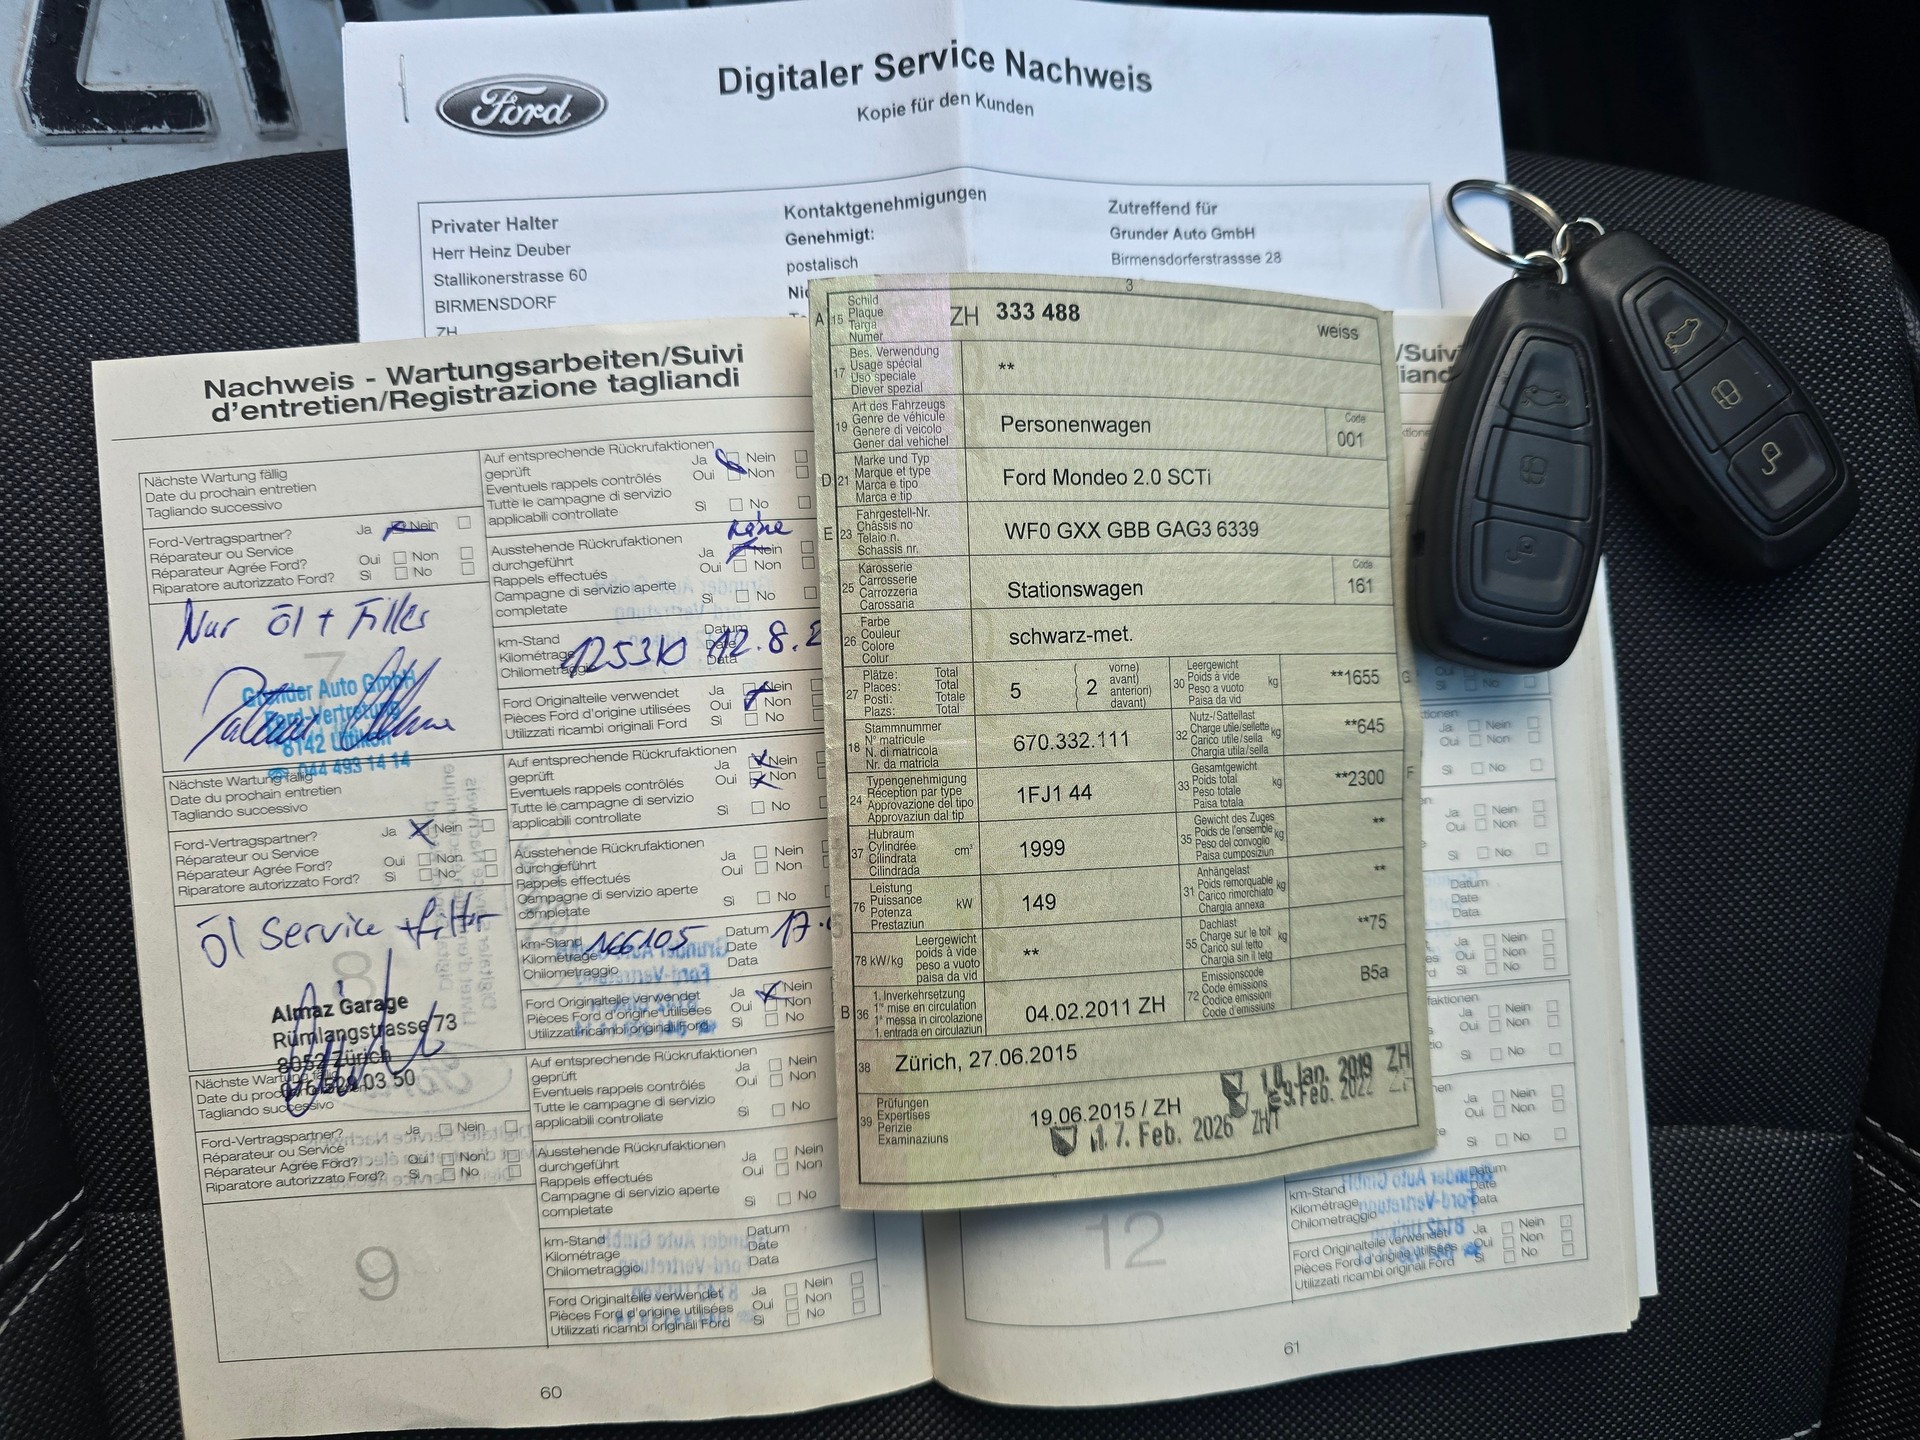 Ford
Digitaler Service Nachweis
Kopie für den Kunden
Privater Halter
Herr Heinz Deuber
Stallikonerstrasse 60
BIRMENSDORF
ZH
Kontaktgenehmigungen
Genehmigt:
postalisch
Zutreffend für
Grunder Auto GmbH
Birmensdorferstrassse 28
Nachweis - Wartungsarbeiten/Suivi
d'entretien/Registrazione tagliandi
Nächste Wartung fällig
Date du prochain entretien
Tagliando successivo
Ford-Vertragspartner? Ja Nein
Réparateur ou Service
Réparateur Agrée Ford? Oui Non
Riparatore autorizzato Ford? Si No
Nur Öl + Filter
7
Grunder Auto GmbH
Ford-Vertretung
8142 Uitikon
044 493 14 14
Auf entsprechende Rückrufaktionen
geprüft Ja Nein
Eventuels rappels contrôlés Oui Non
Tutte le campagne di servizio
applicabili controllate Si No
keine
Ausstehende Rückrufaktionen
durchgeführt Ja Nein
Rappels effectués Oui Non
Campagne di servizio aperte
completate Si No
km-Stand 125310 Datum 12.8.2
Kilométrage Date
Chilometraggio Data
Ford Originalteile verwendet Ja Nein
Pièces Ford d'origine utilisées Oui Non
Utilizzati ricambi originali Ford Si No
Nächste Wartung fällig
Date du prochain entretien
Tagliando successivo
Ford-Vertragspartner? Ja Nein
Réparateur ou Service
Réparateur Agrée Ford? Oui Non
Riparatore autorizzato Ford? Si No
Öl Service + filter
8
Almaz Garage
Rümlangstrasse 73
8052 Zürich
03 50
Auf entsprechende Rückrufaktionen
geprüft Ja Nein
Eventuels rappels contrôlés Oui Non
Tutte le campagne di servizio
applicabili controllate Si No
Ausstehende Rückrufaktionen
durchgeführt Ja Nein
Rappels effectués Oui Non
Campagne di servizio aperte
completate Si No
km-Stand 166105 Datum 17.
Kilométrage Date
Chilometraggio Data
Ford Originalteile verwendet Ja Nein
Pièces Ford d'origine utilisées Oui Non
Utilizzati ricambi originali Ford Si No
Nächste Wartung fällig
Date du prochain entretien
Tagliando successivo
Ford-Vertragspartner? Ja Nein
Réparateur ou Service
Réparateur Agrée Ford? Oui Non
Riparatore autorizzato Ford? Si No
9
Auf entsprechende Rückrufaktionen
geprüft Ja Nein
Eventuels rappels contrôlés Oui Non
Tutte le campagne di servizio
applicabili controllate Si No
Ausstehende Rückrufaktionen
durchgeführt Ja Nein
Rappels effectués Oui Non
Campagne di servizio aperte
completate Si No
km-Stand Datum
Kilométrage Date
Chilometraggio Data
Ford Originalteile verwendet Ja Nein
Pièces Ford d'origine utilisées Oui Non
Utilizzati ricambi originali Ford Si No
60
3
A 15 Schild
Plaque
Targa
Numer
ZH 333 488 weiss
17 Bes. Verwendung
Usage spécial
Uso speciale
Diever spezial
**
19 Art des Fahrzeugs
Genre de véhicule
Genere di veicolo
Gener dal vehichel
Personenwagen Code 001
D 21 Marke und Typ
Marque et type
Marca e tipo
Marca e tip
Ford Mondeo 2.0 SCTi
E 23 Fahrgestell-Nr.
Châssis no
Telaio n.
Schassis nr.
WF0 GXX GBB GAG3 6339
25 Karosserie
Carrosserie
Carrozzeria
Carossaria
Stationswagen Code 161
26 Farbe
Couleur
Colore
Colur
schwarz-met.
27 Plätze: Total
Places: Total
Posti: Totale
Plazs: Total
5 (2 vorne)
avant)
anteriori)
davant)
30 Leergewicht
Poids à vide
Peso a vuoto
Paisa da vid
kg **1655 G
18 Stammnummer
N° matricule
N. di matricola
Nr. da matricla
670.332.111
32 Nutz-/Sattellast
Charge utile/sellette
Carico utile/sella
Chargia utila/sella
kg **645
24 Typengenehmigung
Réception par type
Approvazione del tipo
Approvaziun dal tip
1FJ1 44
33 Gesamtgewicht
Poids total
Peso totale
Paisa totala
kg **2300 F
37 Hubraum
Cylindrée
Cilindrata
Cilindrada
cm³ 1999
35 Gewicht des Zuges
Poids de l'ensemble
Peso del convoglio
Paisa cumposiziun
kg **
76 Leistung
Puissance
Potenza
Prestaziun
kW 149
31 Anhängelast
Poids remorquable
Carico rimorchiato
Chargia annexa
kg **
78 kW/kg Leergewicht
poids à vide
peso a vuoto
paisa da vid
**
55 Dachlast
Charge sur le toit
Carico sul tetto
Chargia sin il tetg
kg **75
B 36 1. Inverkehrsetzung
1re mise en circulation
1a messa in circolazione
1. entrada en circulaziun
04.02.2011 ZH
72 Emissionscode
Code émissions
Codice emissioni
Code d'emissiuns
B5a
38 Zürich, 27.06.2015
39 Prüfungen
Expertises
Perizie
Examinaziuns
19.06.2015 / ZH
Jan. 2019 ZH
Feb. 2022
17. Feb. 2026 ZH
12
km-Stand Datum
Kilométrage Date
Chilometraggio Data
Ford Originalteile verwendet Ja Nein
Pièces Ford d'origine utilisées Oui Non
Utilizzati ricambi originali Ford Si No
61